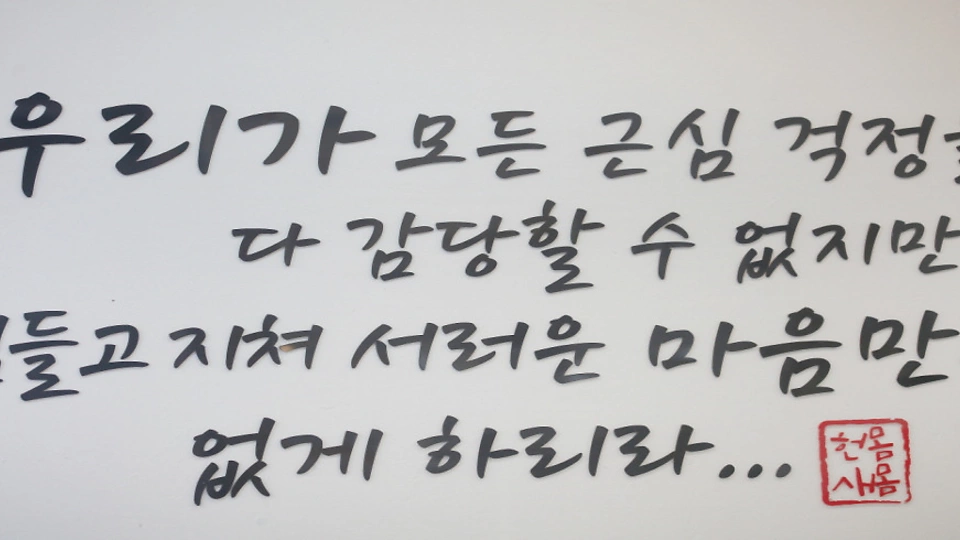 우리가 모든 근심 걱정
다 감당할 수 없지만
들고 지쳐 서러운 마음만
없게 하리라...
헌몸
새몸